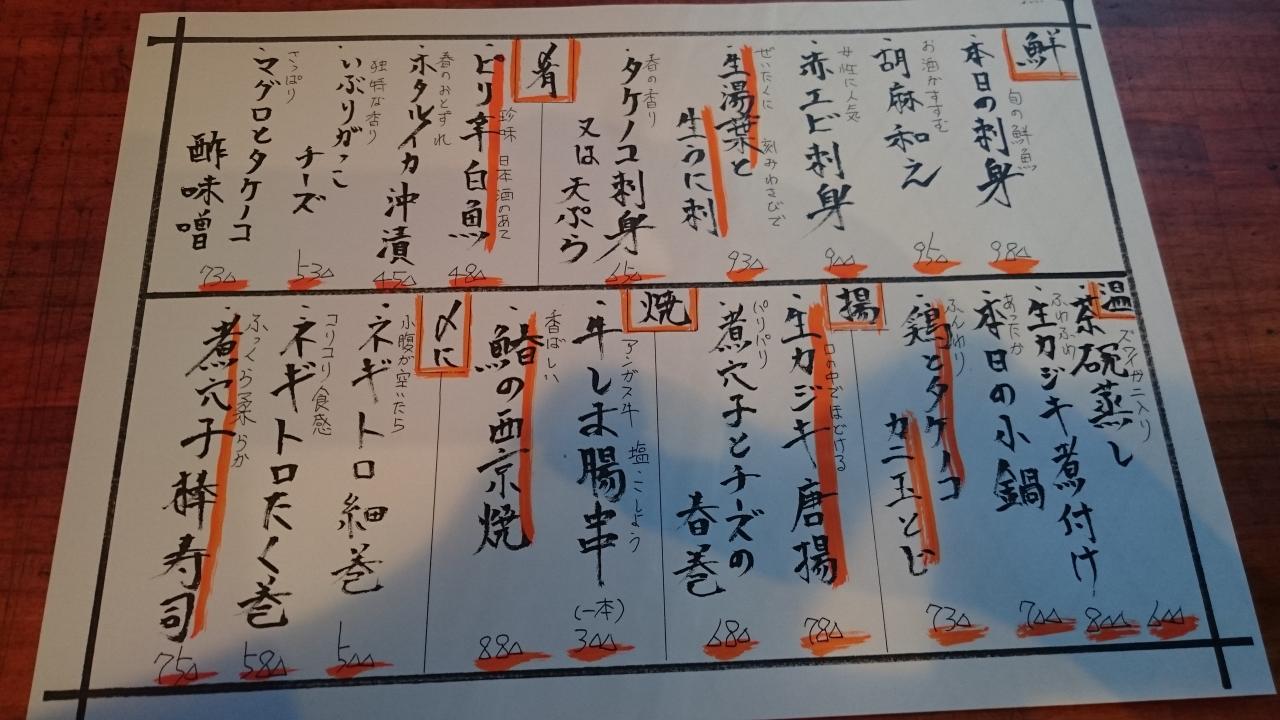 鮮
旬の鮮魚
・本日の刺身
980
お酒がすすむ
・胡麻和え
950
女性に人気
・赤エビ刺身
900
ぜいたくに 刻みわさびで
・生湯葉と
生うに刺
930
春の香り
・タケノコ刺身
又は天ぷら
650
肴
珍味 日本酒のあて
・ピリ辛白魚
480
春のおとずれ
・ホタルイカ沖漬
450
独特な香り
・いぶりがっこ
チーズ
530
さっぱり
・マグロとタケノコ
酢味噌
730
温
ズワイガニ入り
・茶碗蒸し
600
ふわふわ
・生カジキ煮付け
800
あったか
・本日の小鍋
700
ふんわり
・鶏とタケノコ
カニ玉とじ
730
揚
口の中でほどける
・生カジキ唐揚
780
パリパリ
・煮穴子とチーズの
春巻
680
焼
アンガス牛 塩・こしょう
・牛しま腸串
(一本)
300
香ばしい
・鰆の西京焼
880
〆に
小腹が空いたら
・ネギトロ細巻
500
コリコリ食感
・ネギトロたく巻
580
ふっくら柔らか
・煮穴子棒寿司
750